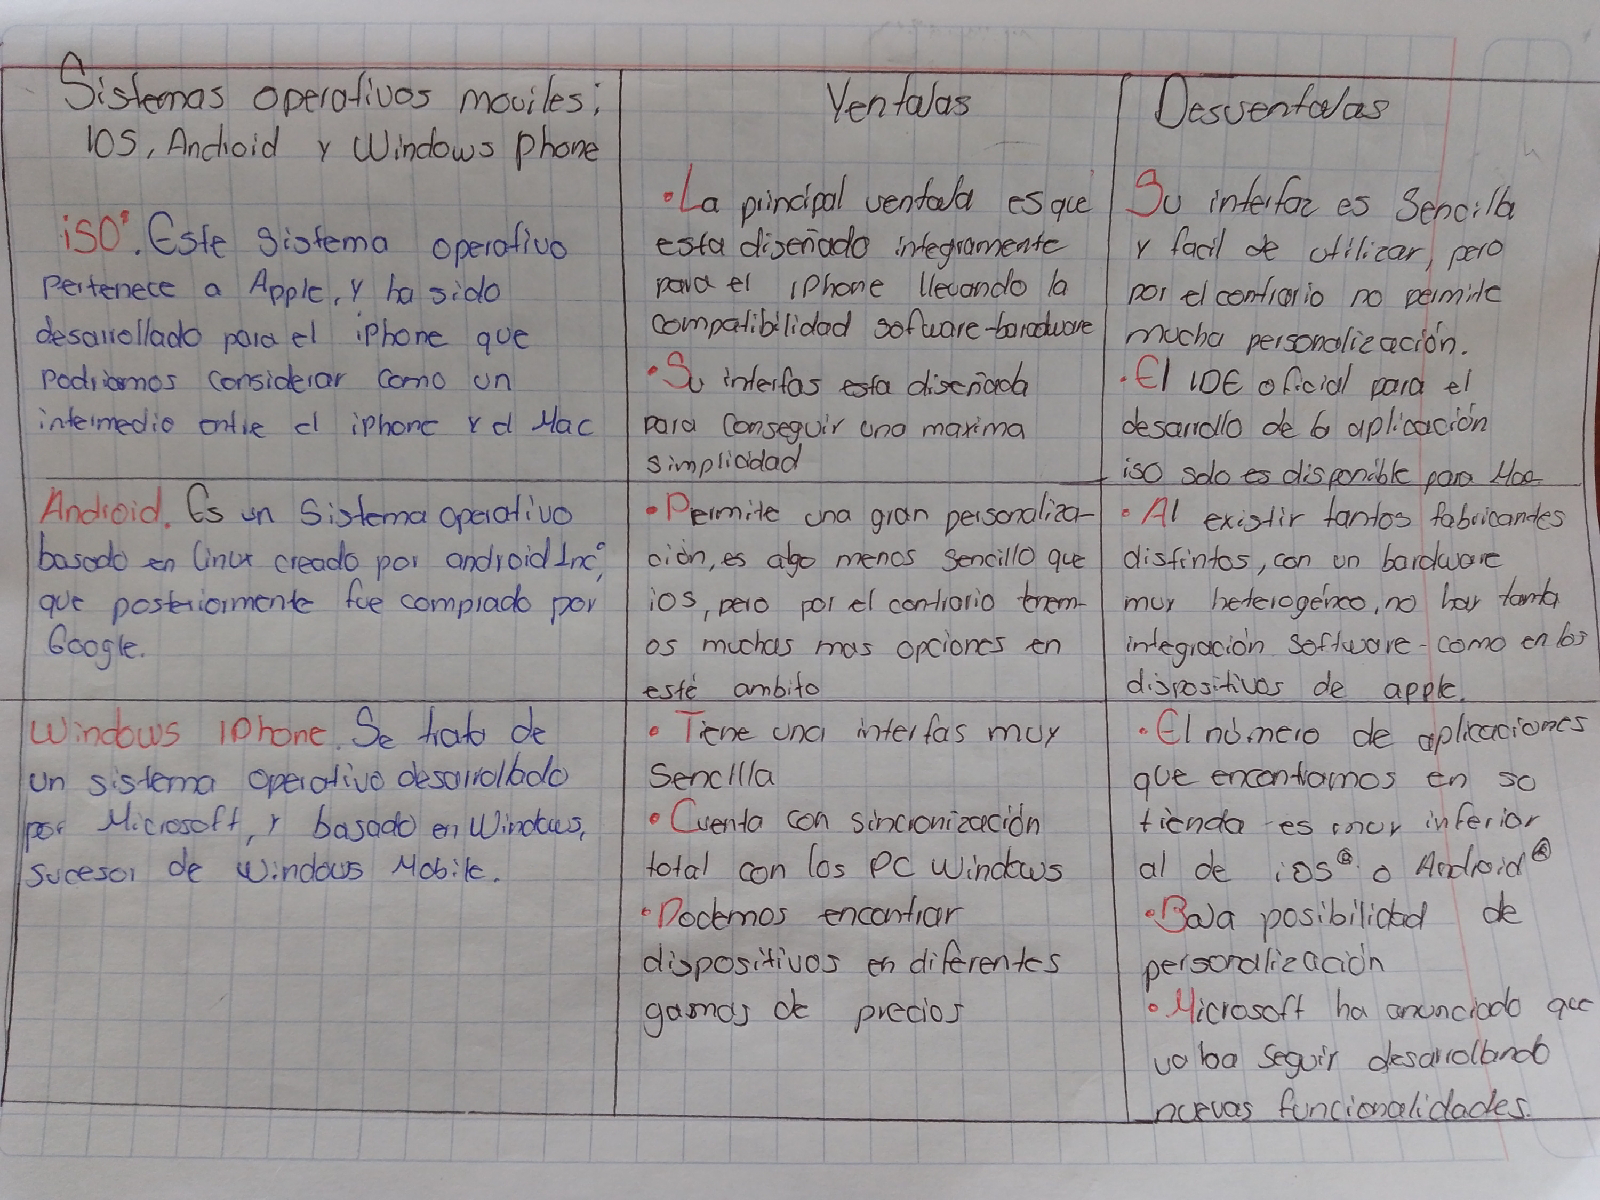 Sistemas operativos moviles;
IOS, Android y Windows Phone
iSO°. Este sistema operativo
Pertenece a Apple, y ha sido
desarrollado para el iPhone que
Podriamos considerar como un
intermedio entre el iphone y el Mac
Android. Es un Sistema operativo
basado en Linux creado por android Inc,
que posteriormente fue comprado por
Google.
Windows IPhone. Se trata de
un sistema operativo desarrollado
por Microsoft, y basado en Windows,
sucesor de Windows Mobile.
Ventajas
• La principal ventaja es que
esta diseñado integramente
para el iPhone llevando la
compatibilidad sofware-hardware
• Su interfas esta diseñada
para conseguir una maxima
simplicidad
• Permite una gran personaliza-
ción, es algo menos sencillo que
ios, pero por el contrario tenem-
os muchas mas opciones en
esté ambito
• Tiene una interfas muy
sencilla
• Cuenta con sincronización
total con los PC Windows
• Podemos encontrar
dispositivos en diferentes
gamas de precios
Desventajas
Su interfaz es sencilla
y facil de utilizar, pero
por el contrario no permite
mucha personalización.
• El IDE oficial para el
desarrollo de la aplicación
iso solo es disponible para Mac
• Al existir tantos fabricantes
distintos, con un hardware
muy heterogéneo, no hay tanta
integración Software - como en los
dispositivos de apple.
• El número de aplicaciones
que encontramos en su
tienda es muy inferior
al de iOS® o Android®
• Baja posibilidad de
personalización
• Microsoft ha anunciado que
seguir desarrollando
nuevas funcionalidades.